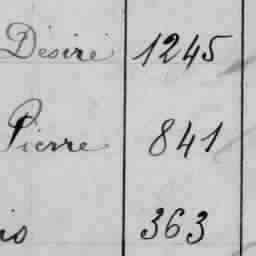 Désiré 1245
Pierre 841
is 363